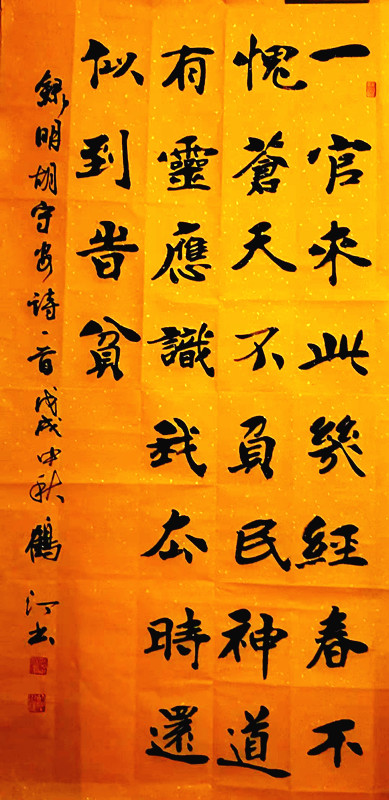 一官來此幾經春不
愧蒼天不負民神道
有靈應識我去時還
似到旹貧
錄明胡守安詩一首戊戌中秋鶴書